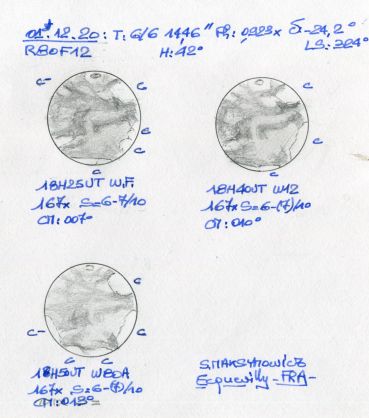 01.12.20: T: 6/6 14,46" Ph: 0,923x δ-24,2°
R80F12 H: 42° LS: 324°
C- C
C
C
C
C
C
C
18H25UT W.F.
167x S=6-7/10
CM: 007°
18H40UT W12
167x S=6-(7)/10
CM: 010°
C
C-
C
C C
18H50UT W80A
167x S=6-(7)/10
CM: 013°
S.MAKSYMOWICZ
Ecquevilly-FRA-